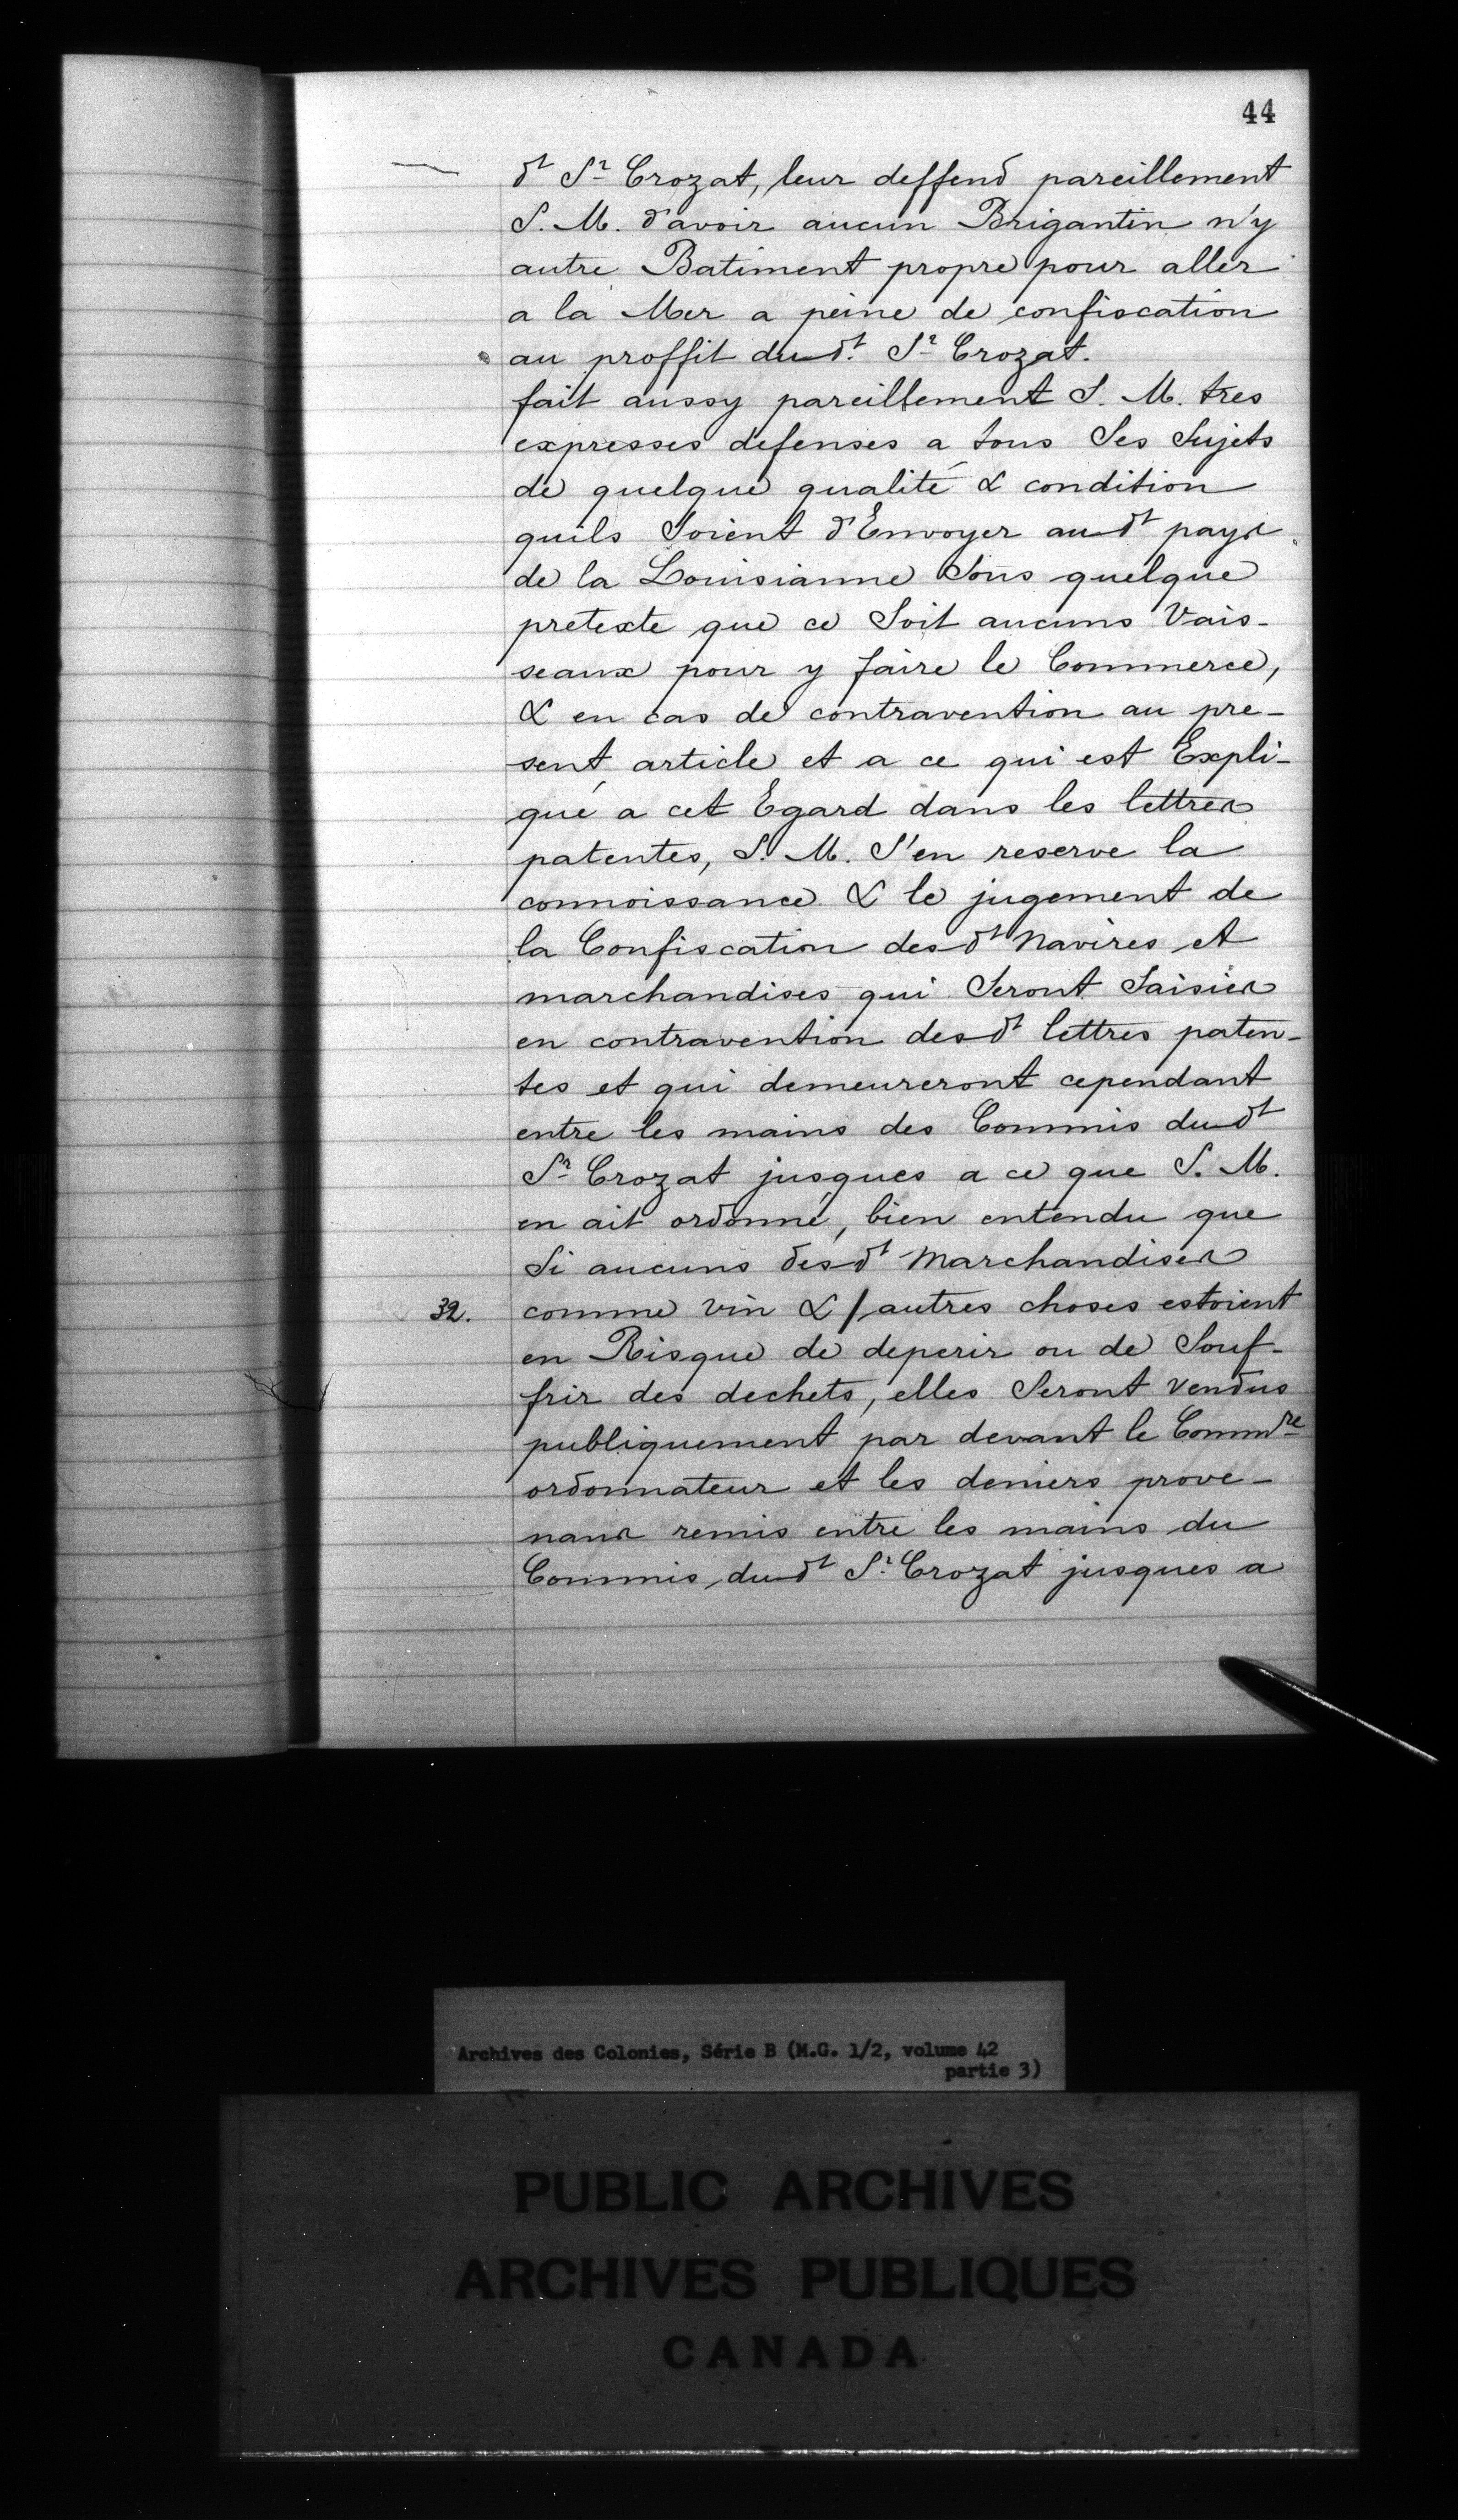 44
dt Sr Crozat, leur deffend pareillement
S. M. d'avoir aucun Brigantin n'y
autre Batiment propre pour aller
a la Mer a peine de confiscation
au proffit dudt. Sr Crozat.
fait aussy pareillement S. M. tres
expresses defenses a tous Ses Sujets
de quelque qualité & condition
quils Soient d'Envoyer audt pays
de la Louisianne Sous quelque
pretexte que ce Soit aucuns Vais-
seaux pour y faire le Commerce,
& en cas de contravention au pre-
sent article et a ce qui est Expli-
qué a cet Egard dans les lettres
patentes, S. M. S'en reserve la
connoissance & le jugement de
la Confiscation desdt Navires et
marchandises qui Seront Saisies
en contravention desdt lettres paten-
tes et qui demeureront cependant
entre les mains des Commis dudt
Sr Crozat jusques a ce que S. M.
en ait ordonné, bien entendu que
Si aucuns desdt Marchandises
32. comme vin & / autres choses estoient
en Risque de deperir ou de Souf-
frir des dechets, elles Seront vendus
publiquement par devant le Commre
ordonnateur et les deniers prove-
nans remis entre les mains du
Commis dudt Sr. Crozat jusques a
Archives des Colonies, Série B (M.G. 1/2, volume 42
partie 3)
PUBLIC ARCHIVES
ARCHIVES PUBLIQUES
CANADA